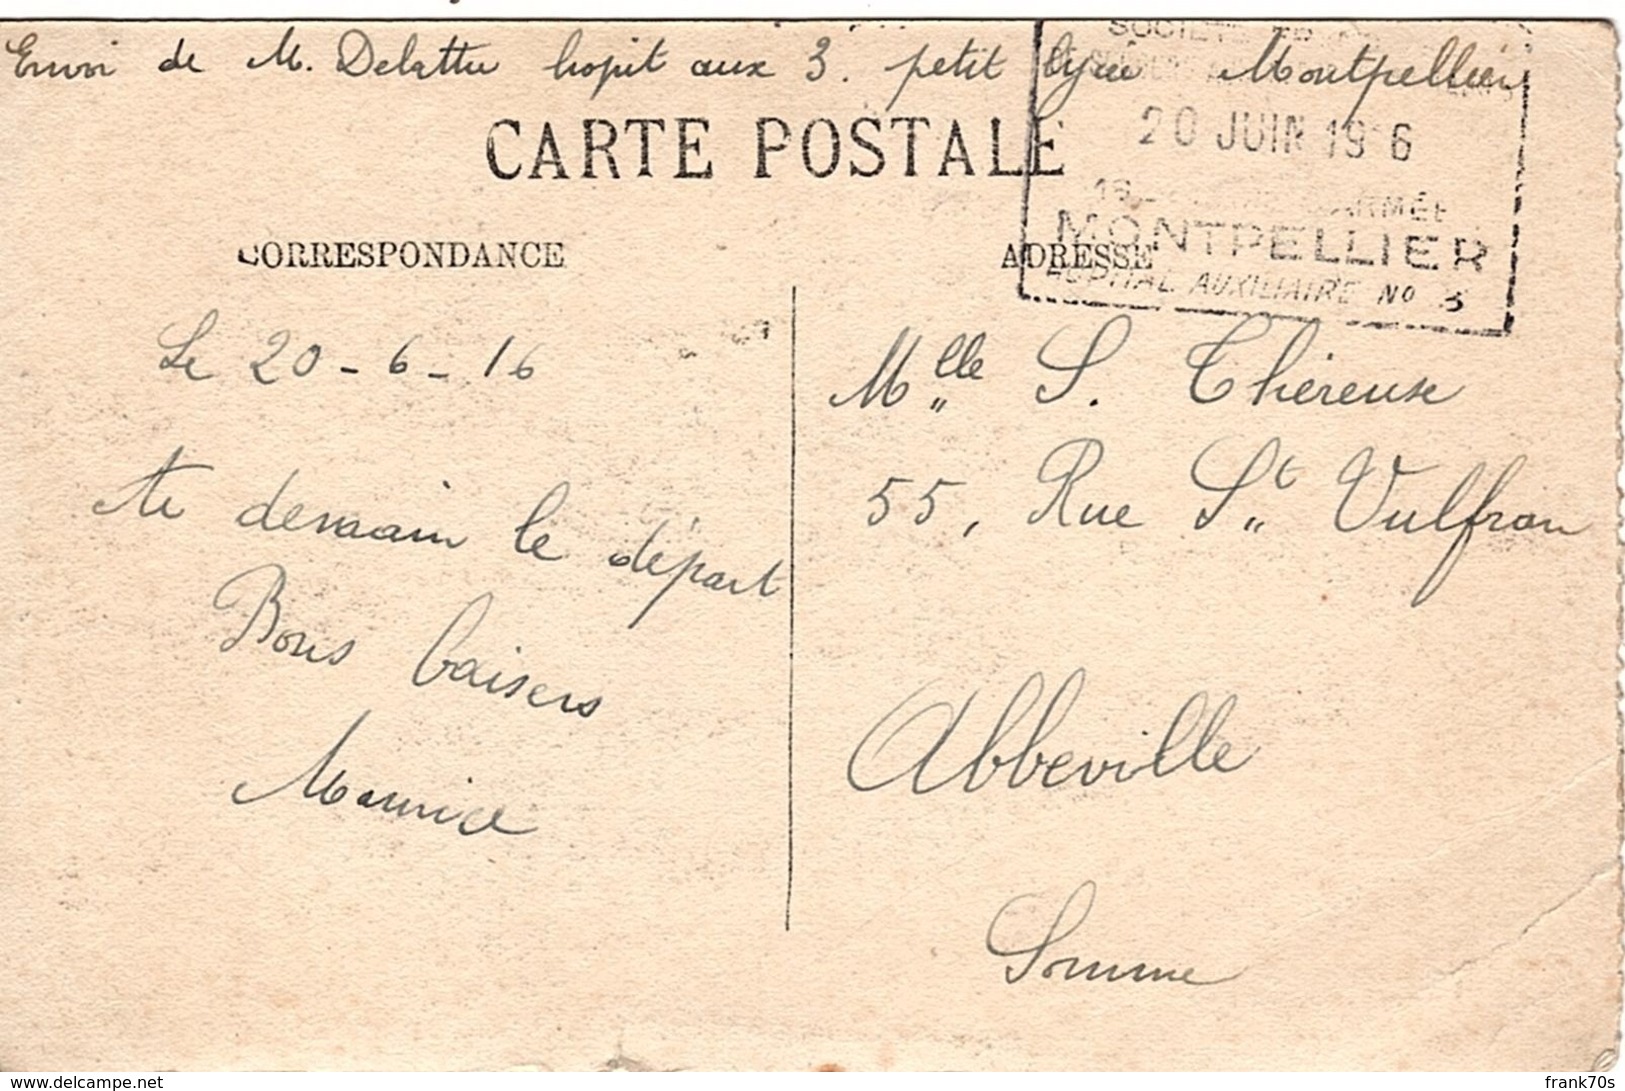 Envoi de M. Delattre hopit aux 3. petit lycée Montpellier
SOCIÉTÉ
20 JUIN 19 6
CARTE POSTALE
ARMÉE
MONTPELLIER
HOPITAL AUXILIAIRE No 3
CORRESPONDANCE
ADRESSE
Le 20-6-16
demain le départ
Bons baisers
Maurice
Mlle S. Théreuse
55, Rue St Vulfran
Abbeville
Somme
www.delcampe.net
frank70s